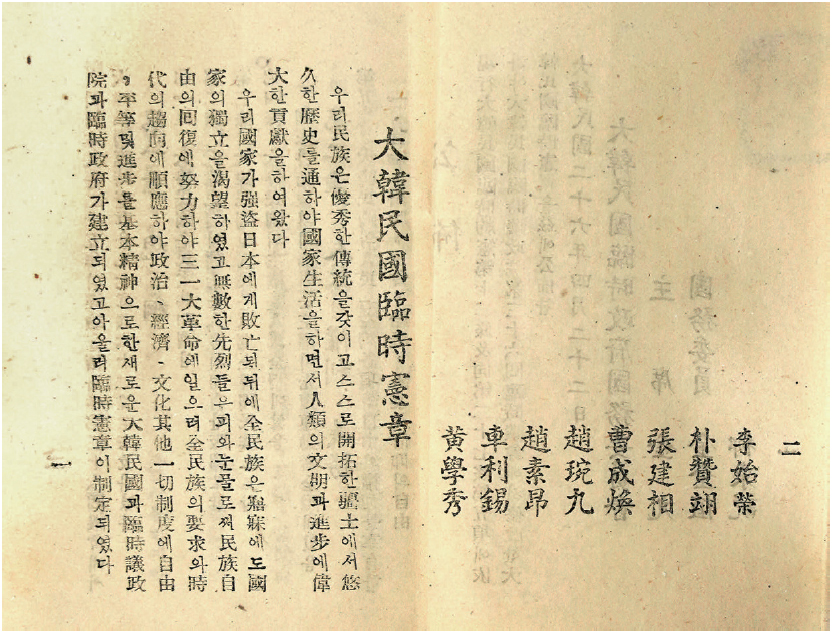 二
李始榮
朴贊翊
張建相
曹成煥
趙琬九
趙素昂
車利錫
黃學秀
大韓民國臨時憲章
우리民族은優秀한傳統을갖이고스스로開拓한疆土에서悠
久한歷史를通하야國家生活을하면서人類의文明과進步에偉
大한貢獻을하여왔다
우리國家가强盜日本에게敗亡된뒤에全民族은寤寐에도國
家의獨立을渴望하였고無數한先烈들은피와눈물로써民族自
由의回復에努力하야三一大革命에일으러全民族의要求와時
代의趨向에順應하야政治、經濟、文化其他一切制度에自由
，平等및進步를基本精神으로한새로운大韓民國과臨時議政
院과臨時政府가建立되였고아울러臨時憲章이制定되였다
一